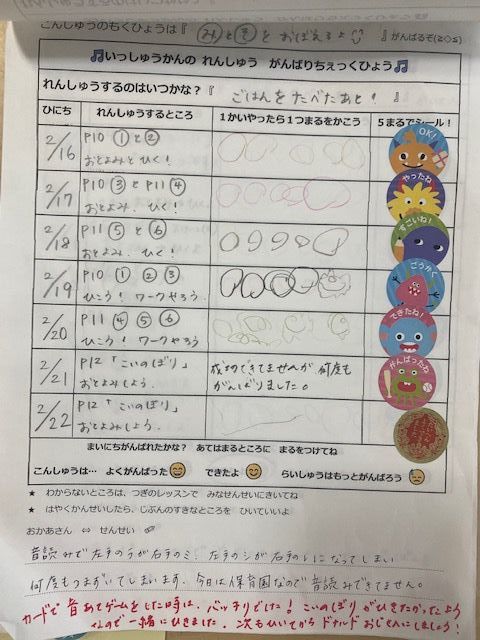 こんしゅうのもくひょうは『 みとそを おぼえるよ 』がんばるぞ(≧◇≦)
🎵いっしゅうかんの れんしゅう がんばりちぇっくひょう🎵
れんしゅうするのはいつかな？『 ごはんをたべたあと！ 』
ひにち れんしゅうするところ 1かいやったら1つまるをかこう 5まるでシール！
2/16 P10 ①と② OK!
おとよみとひく！
2/17 P10 ③とP11④ やったね
おとよみ、ひく！
2/18 P11 ⑤と⑥ すごいね！
おとよみ、ひく！
2/19 P10 ① ② ③ ごうかく
ひこう！ワークやろう
2/20 P11 ④ ⑤ ⑥ できたね！
ひこう！ワークやろう
2/21 P12「こいのぼり」 成功できてませんが、何度も がんばったね
おとよみしよう。 がんばりました。
2/22 P12「こいのぼり」
おとよみしよう。
まいにちがんばれたかな？ あてはまるところに まるをつけてね
こんしゅうは… よくがんばった😄 できたよ😊 らいしゅうはもっとがんばろう😓
★ わからないところは、つぎのレッスンで みなせんせいにきいてね
★ はやくかんせいしたら、じぶんのすきなところを ひいていいよ
おかあさん ⇔ せんせい
音読みで左手のラが右手のミ、左手のシが右手のレになってしまい
何度もつまずいてしまいます。今日は保育園なので音読みできてません。
カードで音あてゲームをした時は、バッチリでした！こいのぼりがひきたかったよう
なので一緒にひきました。次もひいてから ドナルドおじさんにしましょう！